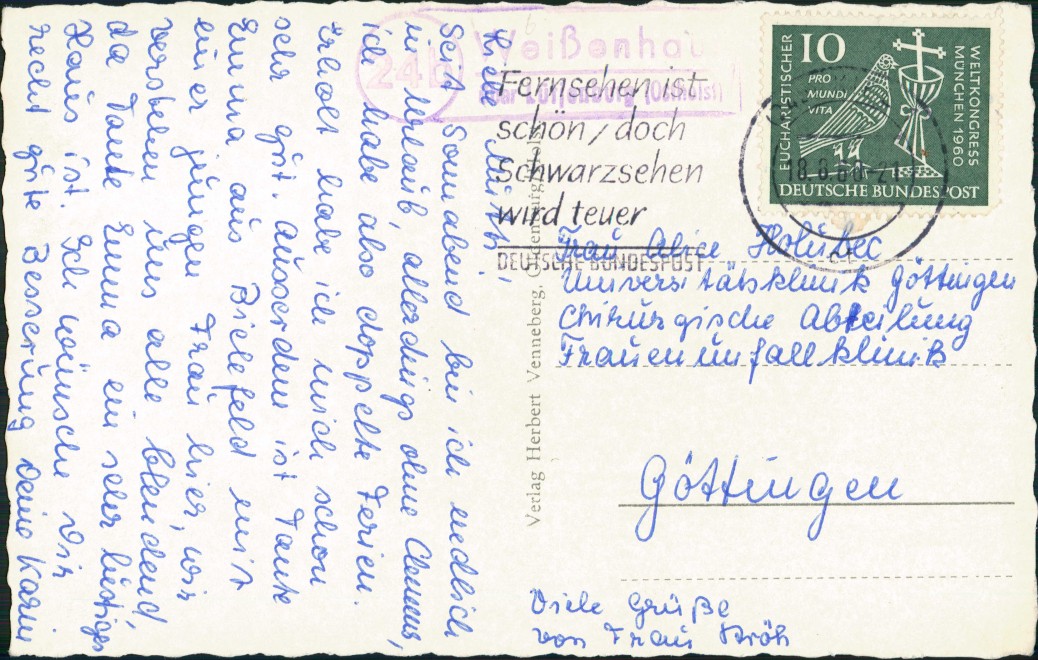 Liebe Mutti,
Seit Sonnabend bin ich endlich
in Urlaub, allerdings ohne Clemens,
ich habe also doppelte Ferien.
Erholt habe ich mich schon
sehr gut. Ausserdem ist Tante
Emma aus Bielefeld mit
einer jungen Frau hier, wir
verstehen uns alle blendend,
da Tante Emma ein sehr lustiges
Haus ist. Ich wünsche Dir
recht gute Besserung Deine Karin
24b
Weißenhau
über Lütjenburg (Ostholst)
Fernsehen ist
schön, doch
Schwarzsehen
wird teuer
DEUTSCHE BUNDESPOST
18.8.60-21
10
PRO
MUNDI
VITA
EUCHARISTISCHER
WELTKONGRESS
MÜNCHEN 1960
DEUTSCHE BUNDESPOST
Verlag Herbert Venneberg,
Frau Alice Holubec
Universitätsklinik Göttingen
Chirurgische Abteilung
Frauenunfallklinik
Göttingen
Viele Grüße
von Frau Kröh